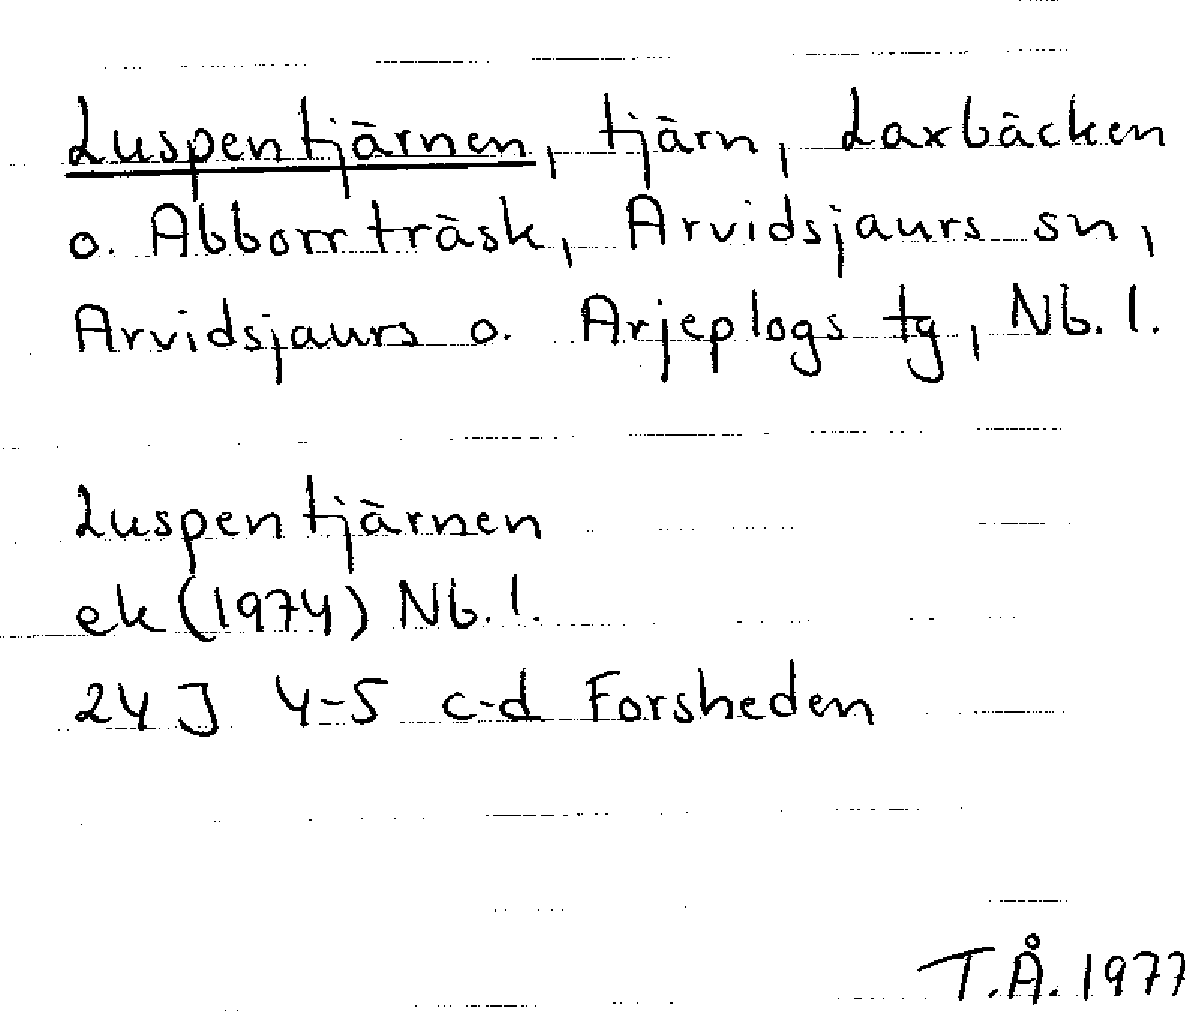 Luspentjärnen, tjärn, Laxbäcken
o. Abborrträsk, Arvidsjaurs sn,
Arvidsjaurs o. Arjeplogs tg, Nb. l.
Luspentjärnen
ek (1974) Nb. l.
24 J 4-5 c-d Forsheden
T.Å. 1977